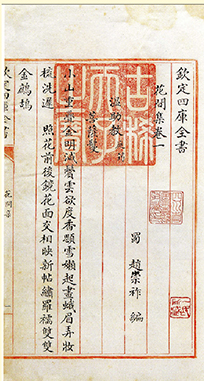 欽定四庫全書
花間集卷一
蜀 趙崇祚 編
助教
菩薩蠻
小山重疊金明滅鬢雲欲度香顋雪嬾起畫蛾眉弄妝
梳洗遲 照花前後鏡花面交相映新帖繡羅襦雙雙
金鷓鴣
欽定四庫全書
花間集
古稀天子